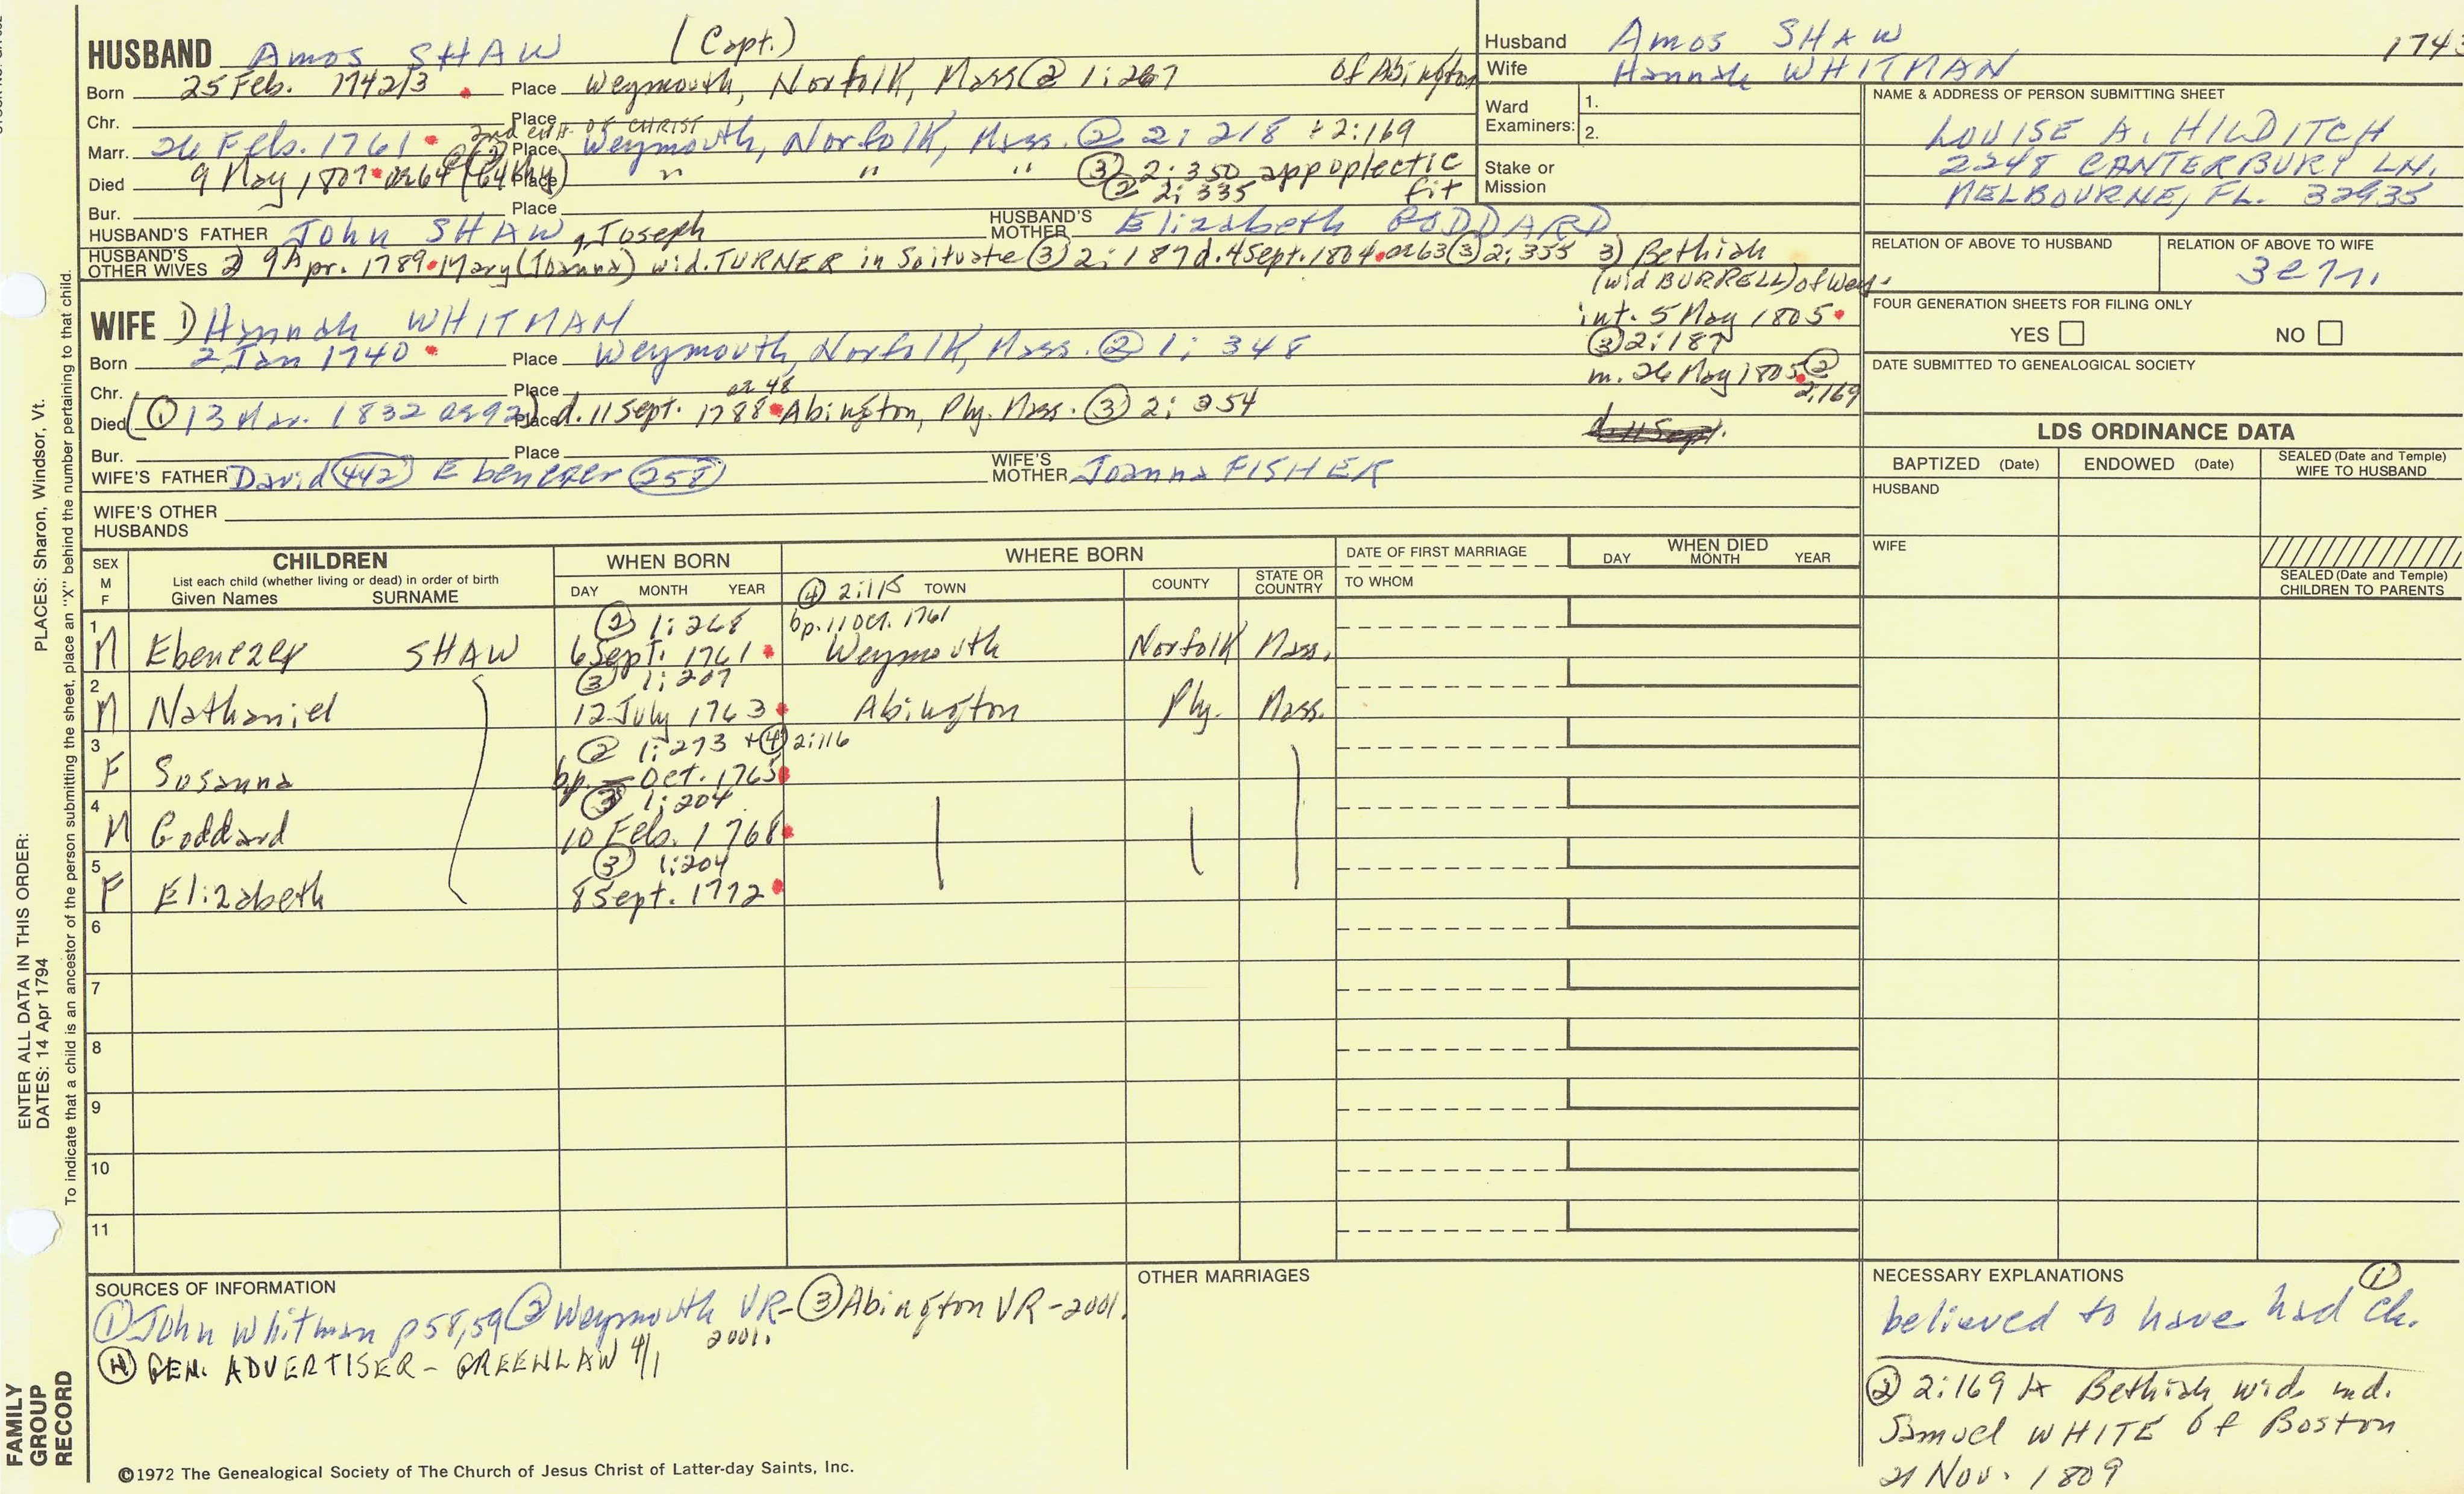 HUSBAND Amos SHAW (Capt.)
Born 25 Feb. 1742/3 Place Weymouth, Norfolk, Mass ② 1:267 of Abington
Chr. Place 2nd CH. OF CHRIST
Marr. 26 Feb. 1761 Place Weymouth, Norfolk, Mass. ② 2:218 + 2:169
Died 9 May 1807 ae 64 (64thy) Place " " " ③ 2:350 appoplectic fit
② 2:335
Bur. Place
HUSBAND'S FATHER John SHAW, Joseph HUSBAND'S MOTHER Elizabeth GODDARD
HUSBAND'S OTHER WIVES 2) 9 Apr. 1789 Mary (Joanna) wid. TURNER in Scituate ③ 2:187 d. 4 Sept. 1804 ae 63 ③ 2:355 3) Bethiah
(wid BURRELL) of Wey.
int. 5 May 1805
③ 2:187
m. 26 May 1805 ②
2:169
d. 11 Sept.
WIFE 1) Hannah WHITMAN
Born 2 Jan 1740 Place Weymouth, Norfolk, Mass. ② 1:348
Chr. Place ae 48
Died (① 13 Mar. 1832 ae 92) Place d. 11 Sept. 1788 Abington, Ply. Mass. ③ 2:354
Bur. Place
WIFE'S FATHER David (442) Ebenezer (258) WIFE'S MOTHER Joanna FISHER
WIFE'S OTHER HUSBANDS
Husband Amos SHAW 1743
Wife Hannah WHITMAN
Ward Examiners: 1.
2.
Stake or Mission
NAME & ADDRESS OF PERSON SUBMITTING SHEET
LOUISE A. HILDITCH
2248 CANTERBURY LN.
MELBOURNE, FL. 32935
RELATION OF ABOVE TO HUSBAND RELATION OF ABOVE TO WIFE
FOUR GENERATION SHEETS FOR FILING ONLY
YES NO
DATE SUBMITTED TO GENEALOGICAL SOCIETY
LDS ORDINANCE DATA
BAPTIZED (Date) ENDOWED (Date) SEALED (Date and Temple) WIFE TO HUSBAND
HUSBAND
WIFE
SEALED (Date and Temple) CHILDREN TO PARENTS
SEX M F CHILDREN WHEN BORN WHERE BORN DATE OF FIRST MARRIAGE WHEN DIED
List each child (whether living or dead) in order of birth
Given Names SURNAME DAY MONTH YEAR ④ 2:115 TOWN COUNTY STATE OR COUNTRY TO WHOM DAY MONTH YEAR
② 1:268 bp. 11 Oct. 1761
1 M Ebenezer SHAW 6 Sept. 1761 Weymouth Norfolk Mass.
③ 1:207
2 M Nathaniel 12 July 1763 Abington Ply. Mass.
② 1:273 + ④ 2:116
3 F Susanna bp. — Oct. 1765
③ 1:204
4 M Goddard 10 Feb. 1768
③ 1:204
5 F Elizabeth 8 Sept. 1772
6
7
8
9
10
11
SOURCES OF INFORMATION
① John Whitman p 58,59 ② Weymouth VR - 2001. ③ Abington VR - 2001.
④ GEN. ADVERTISER - GREENLAW 4/1
OTHER MARRIAGES
NECESSARY EXPLANATIONS ①
believed to have had ch.
② 2:169 Bethiah wid. md.
Samuel WHITE of Boston
21 Nov. 1809
©1972 The Genealogical Society of The Church of Jesus Christ of Latter-day Saints, Inc.
FAMILY GROUP RECORD
ENTER ALL DATA IN THIS ORDER:
DATES: 14 Apr 1794
PLACES: Sharon, Windsor, Vt.
To indicate that a child is an ancestor of the person submitting the sheet, place an "X" behind the number pertaining to that child.